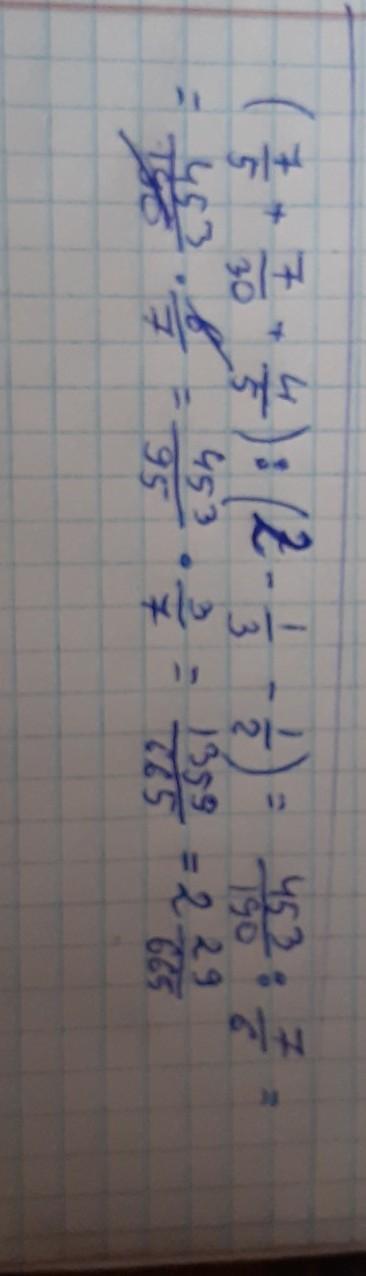 (7/5 + 7/38 + 4/5) : (2 - 1/3 - 1/2) = 453/190 : 7/6 =
= 453/190 · 6/7 = 453/95 · 3/7 = 1359/665 = 2 29/665